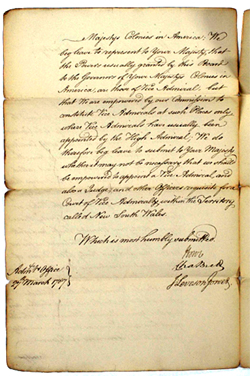 Majestys Colonies in America; We
beg leave to represent to Your Majesty, that
the Powers usually granted by this Board
to the Governor of Your Majestys Colonies in
America, are those of Vice Admiral, but
that We are impowered by our Commission to
constitute Vice Admirals at such Places only
where Vice Admirals have usually been
appointed by the High Admiral; We do
therefore beg leave to submit to Your Majesty
whether it may not be necessary that we should
be impowered to appoint a Vice Admiral, and
also a Judge, and other Officers requisite for a
Court of Vice Admiralty within the Territory
called New South Wales.
Which is most humbly submitted
Howe
Cha Brett
J Leveson Gower
Admty Office
March 1787